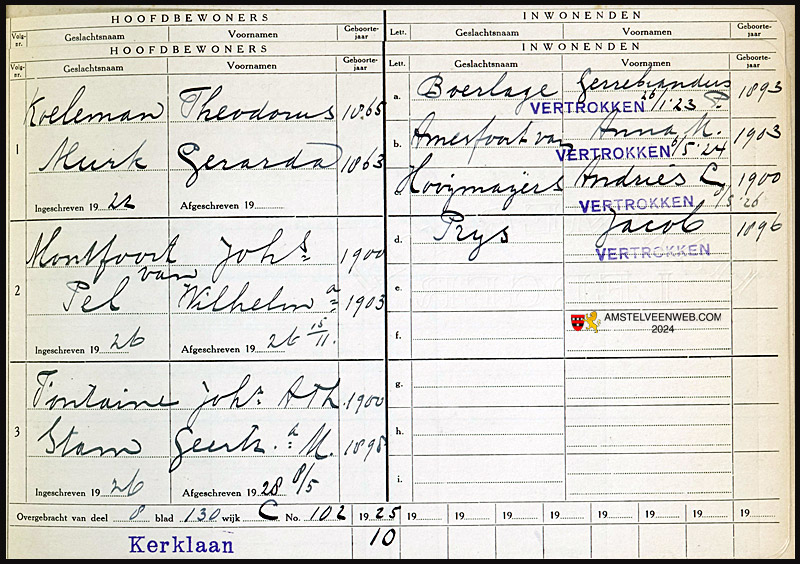 HOOFDBEWONERS
Volg-nr. Geslachtsnaam Voornamen Geboorte-jaar
HOOFDBEWONERS
Volg-nr. Geslachtsnaam Voornamen Geboorte-jaar
1 Koeleman Theodorus 1865
Murk Gerarda 1863
Ingeschreven 19 22 Afgeschreven 19
2 Montfoort van Johs 1900
Pel Wilhelm a 1903
Ingeschreven 19 26 Afgeschreven 19 26 15/11.
3 Fontaine Johs Ath. 1900
Stam Geertr. a M. 1898
Ingeschreven 19 26 Afgeschreven 19 28 8/5
INWONENDEN
Lett. Geslachtsnaam Voornamen Geboorte-jaar
INWONENDEN
Lett. Geslachtsnaam Voornamen Geboorte-jaar
a. Boerlage Gerrebrandus 1893
VERTROKKEN 26/1'23
b. Amesfoort van Anna M. 1903
VERTROKKEN /5'24
c. Hooijmaijers Andries C. 1900
VERTROKKEN /5'26
d. Prys Jacob 1896
VERTROKKEN
e.
f.
AMSTELVEENWEB.COM
2024
g.
h.
i.
Overgebracht van deel 8 blad 130 wijk C No. 102 1925 19 19 19 19 19 19 19 19
Kerklaan 10